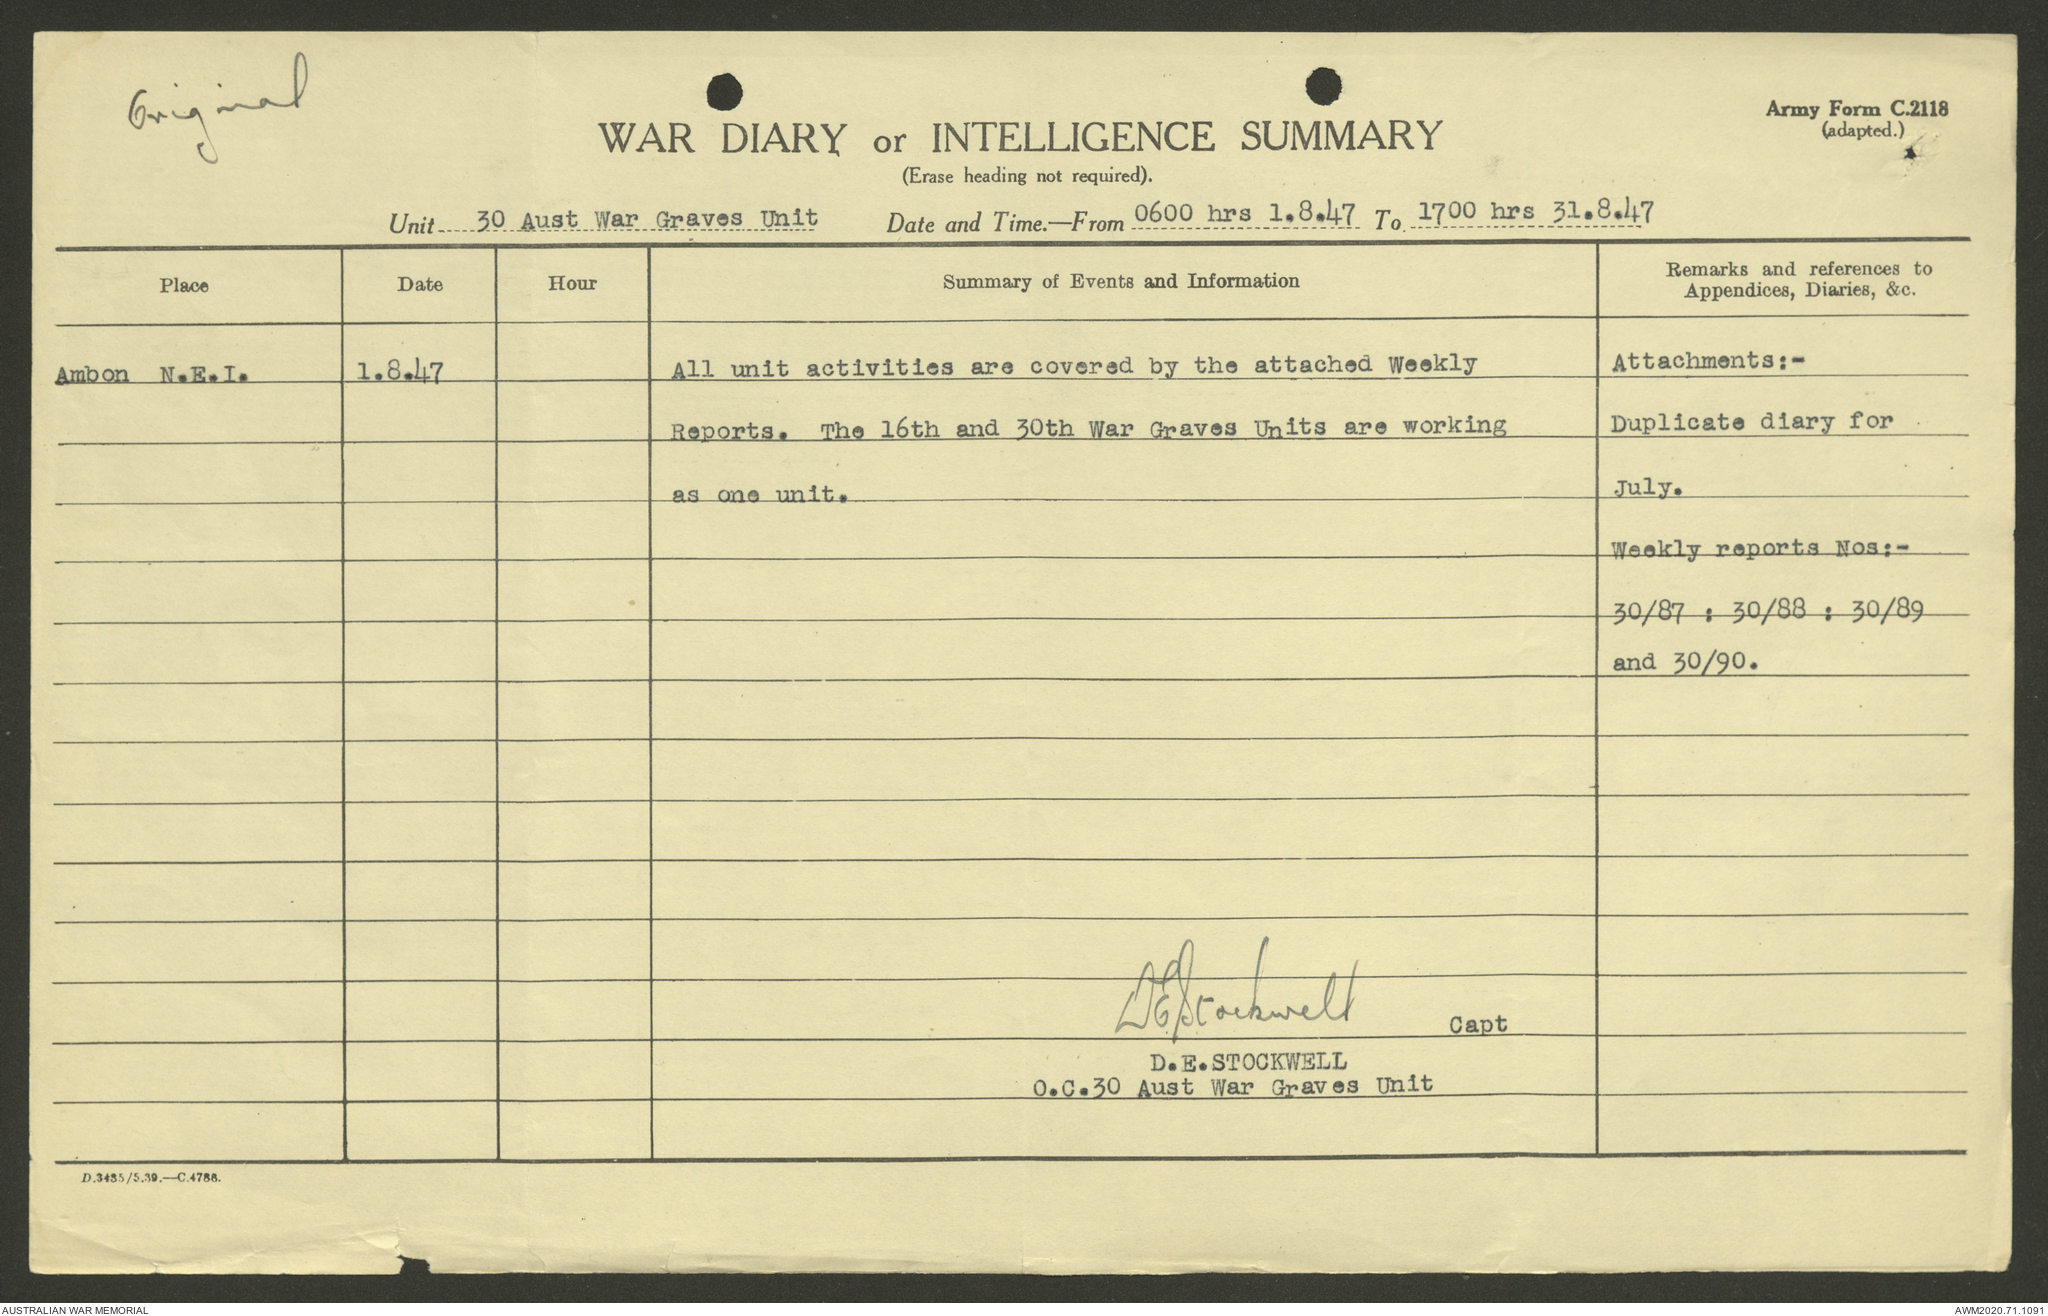 Original
Army Form C.2118
(adapted.)
WAR DIARY or INTELLIGENCE SUMMARY
(Erase heading not required).
Unit 30 Aust War Graves Unit Date and Time.—From 0600 hrs 1.8.47 To 1700 hrs 31.8.47
Place Date Hour Summary of Events and Information Remarks and references to
Appendices, Diaries, &c.
Ambon N.E.I. 1.8.47 All unit activities are covered by the attached Weekly Attachments:-
Reports. The 16th and 30th War Graves Units are working Duplicate diary for
as one unit. July.
Weekly reports Nos:-
30/87 : 30/88 : 30/89
and 30/90.
DEStockwell Capt
D.E.STOCKWELL
O.C.30 Aust War Graves Unit
D.3485/5.39.—C.4788.
AUSTRALIAN WAR MEMORIAL AWM2020.71.1091